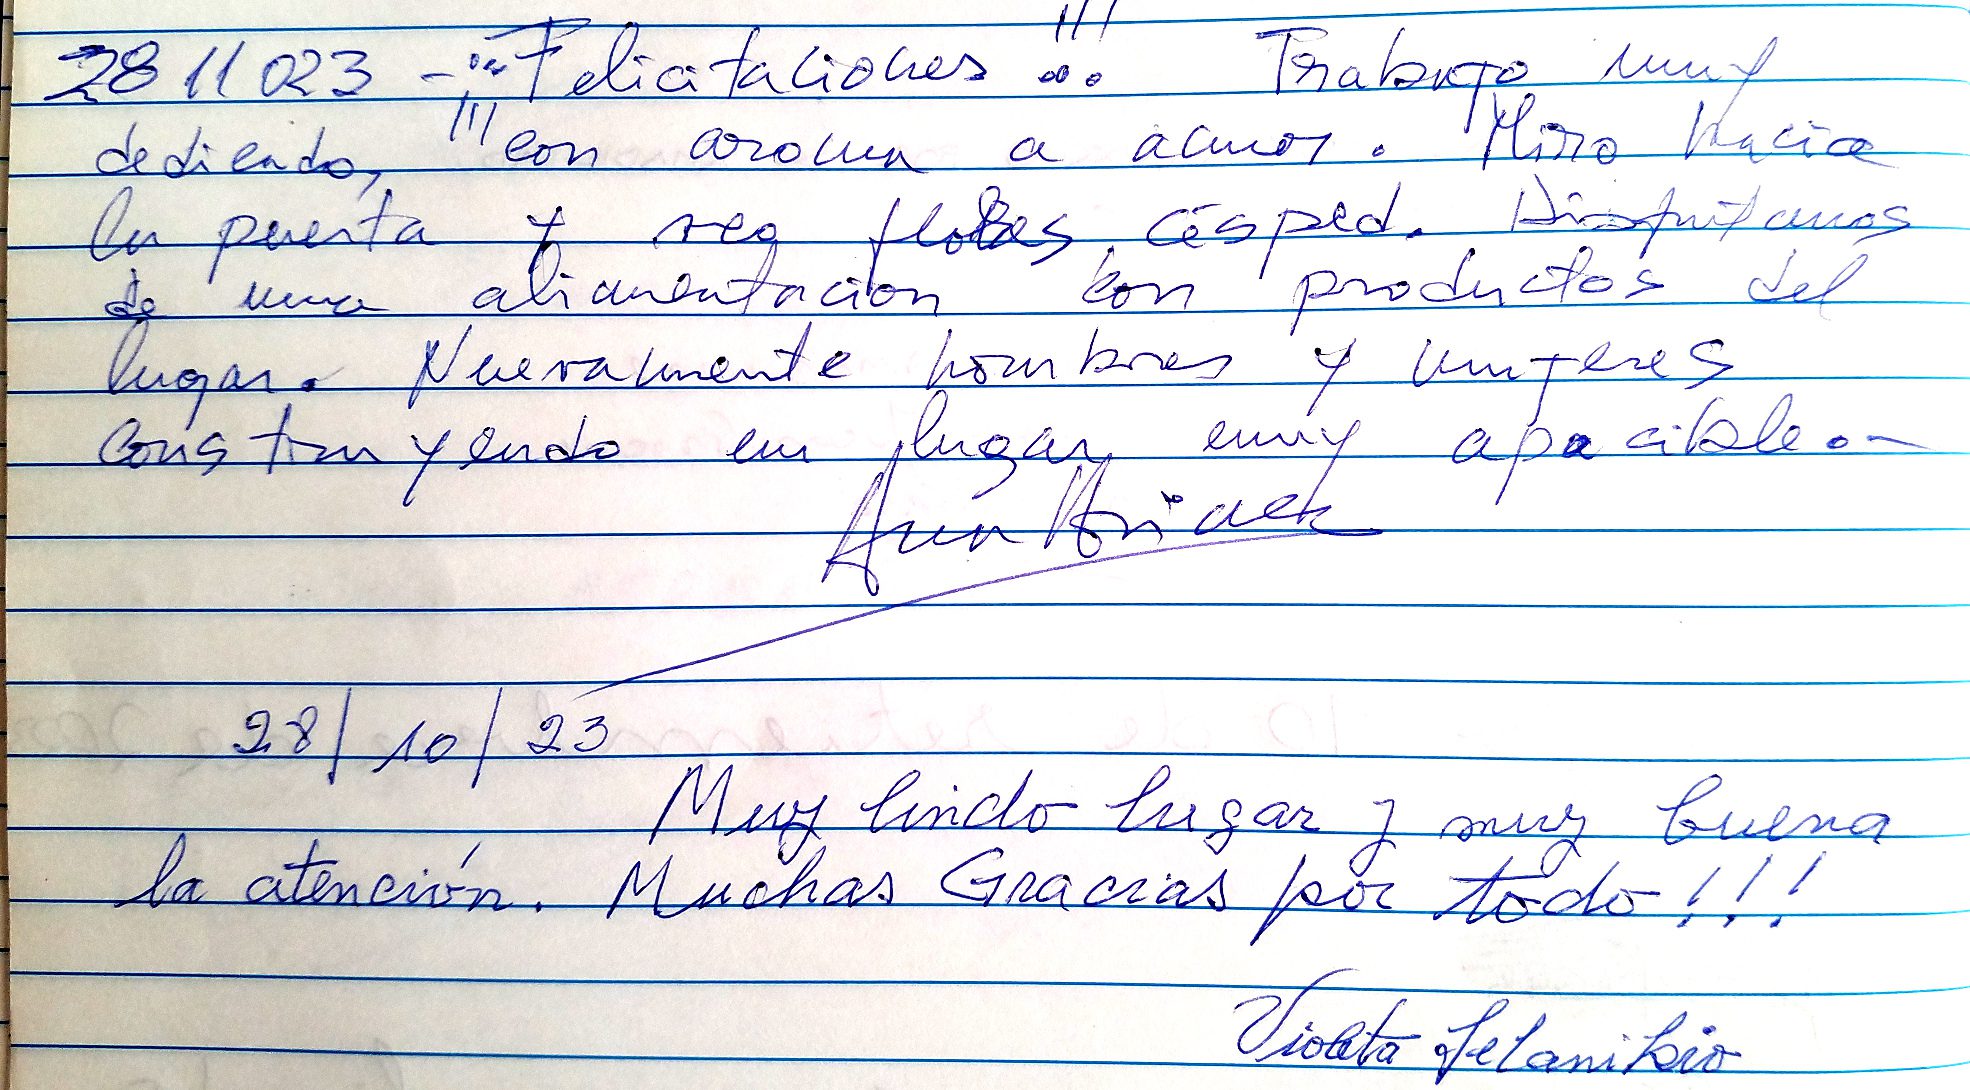 28 11 023 - ¡¡¡Felicitaciones!!! Trabajo muy
dedicado, con aroma a amor. Miro hacia
la puerta y veo flores, césped. Disfrutamos
de una alimentacion con productos del
lugar. Nuevamente hombres y mujeres
construyendo un lugar muy apacible.-
28/10/23
Muy lindo lugar y muy buena
la atención. Muchas Gracias por todo!!!
Violeta Selanikio